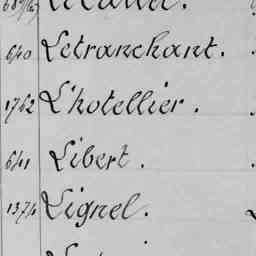 640 Letranchant.
1762 L'hotellier.
641 Libert.
1374 Lignel.